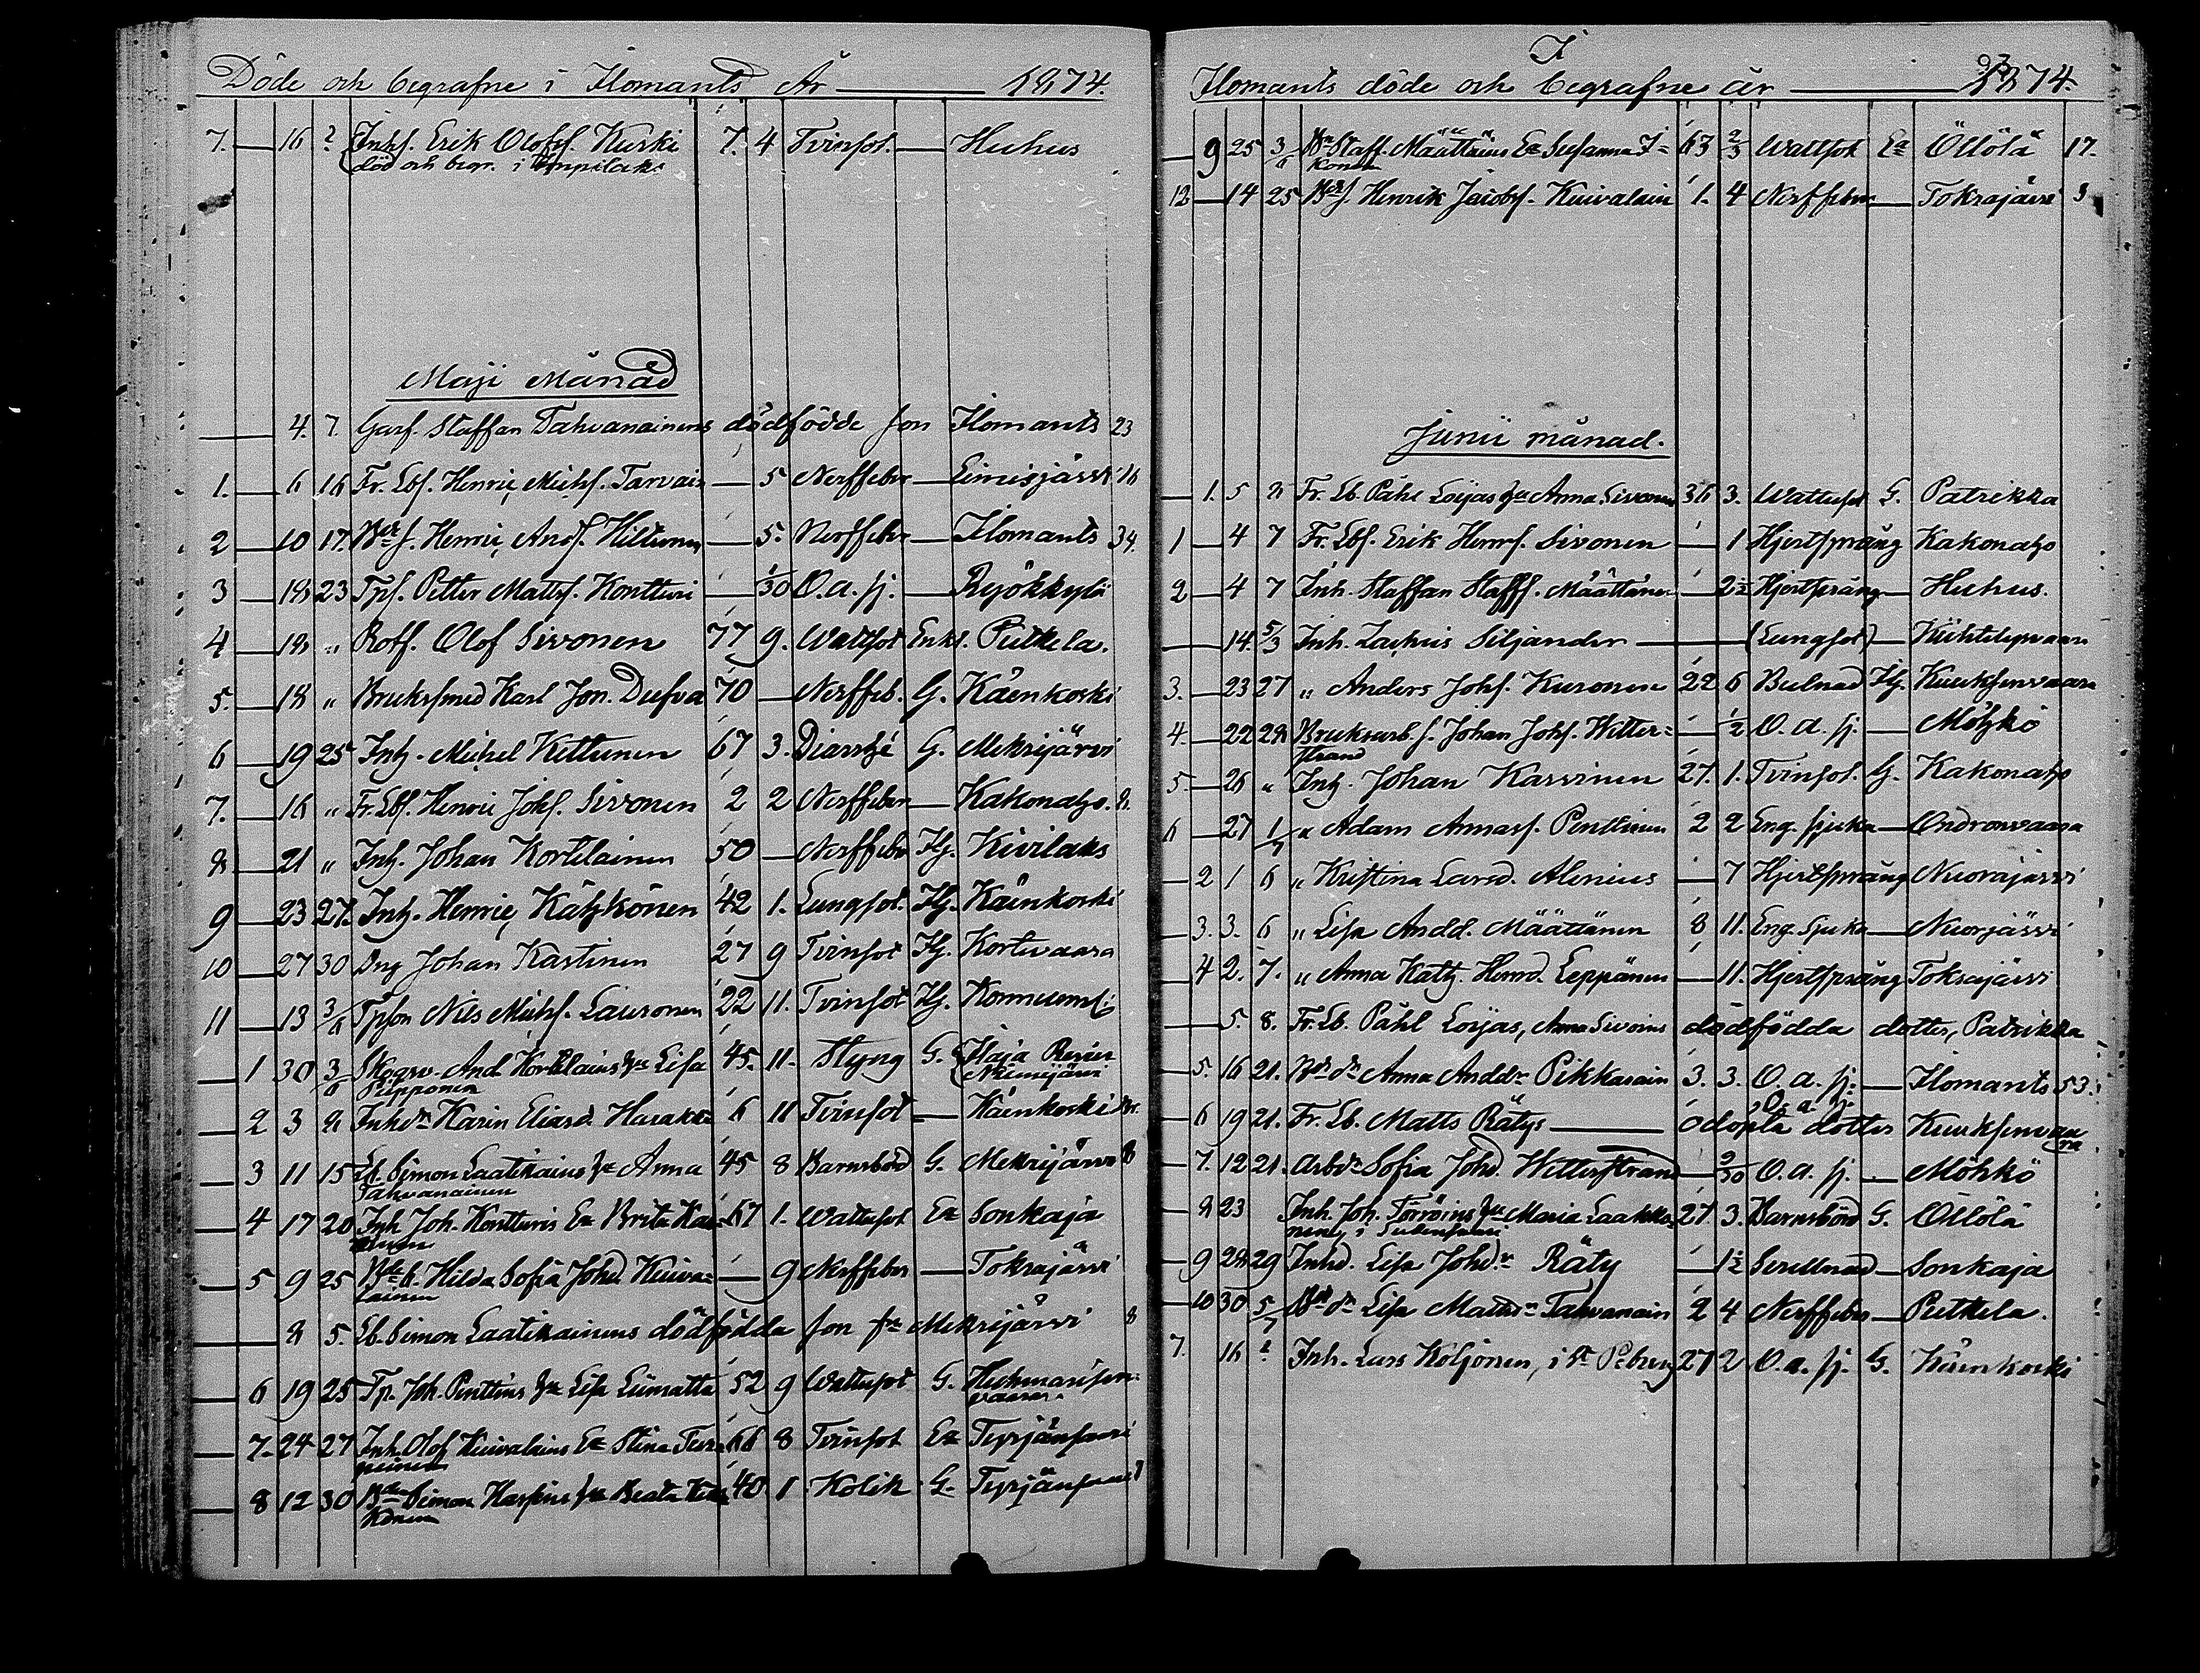 Döde och begrafne i Ilomants År 1874.
7. 16 ? Inhs. Erik Olofss. Kuski 7. 4 Tvinsot. Huhus
död och begr. i
Maji Månad
4. 7. Staffan Tahvanainens dödfödde son Ilomants 23
1. 6 16 Fr. Lbs. Henric Michs. Tarvain 5 Nerffeber Liusjärvi 16
2 10 17. Henric Ands. Hiltunen 5. Nerffeber Ilomants 34.
3 18 23 Tps. Petter Matts. Kontturi 1/30 O.a.sj. Ryökkylä
4 18 " Rotf. Olof Sivonen 77 9. Wattsot Enkl. Putkela.
5. 18 " Bruksmed Karl Jon. Dufva 70 Nerffeb. G. Käenkoski
6 19 25 Inh. Michel Kettunen 67 3. Diarrhé G. Mekrijärvi
7. 16 " Fr. Lbs. Henric Johs. Sivonen 2 2 Nerffeber Kakonaho. 8.
8 21 " Inh. Johan Kortelainen 50 Nerffeber Hg. Kivilaks
9 23 27. Inh. Henric Kähkönen 42 1. Lungsot. Hg. Käenkoski
10 27 30 Dng Johan Kastinen 27 9 Tvinsot Hg. Kortevaara
11 13 3/6 Tpson Nils Michs. Lauronen 22 11. Tvinsot Hg. Konnunniemi
1 30 3/6 Skogsv. And. Kortelains hu Lisa 45. 11. Styng G. Ilaja Revier
Ripponen Niemijärvi
2 3 8 Inhdr Karin Eliasd. Harakka 6 11 Tvinsot Käenkoski
3 11 15 Lb. Simon Laatikains hu Anna 45 8 Barnsbörd G. Mekrijärvi 8
Tahvanainen
4 17 20 Inh. Joh. Kontturis Ea Brita 67 1. Wattusot Ea Sonkaja
5 9 25 Hilda Sofia Johd. Kuiva= 9 Nerffeber Tokrajärvi
lainen
8 5. Lb. Simon Laatikainens dödfödda son fr Mekrijärvi 8
6 19 25 Tp. Joh. Penttins hu Lisa Liimatta 52 9 Wattusot G.
vaara
7. 24 27 Inh. Olof Kuivalains Ea Stina 66 8 Tvinsot Ea Tyrjänsaari
8 12 30 Simon Haskins hu Beata 40 1 Kolik G. Tyrjänsaari
könen
I
Ilomants döde och begrafne år 1874.
9 25 3/6 Staff. Määttäins Ea Susanna I= 63 2/3 Wattsot Ea Öllölä 17.
konen
12 14 25 Henrik Jacobs. Kuivalain 1. 4 Nerffeber Tokrajärvi 3
Junii månad.
1. 5 8 Fr. Lb. Påhl Loijas hu Anna Sivonen 36 3. Wattusot G. Patrikka
1 4 7 Fr. Lbs. Erik Henrs. Sivonen 1 Hjertsprång Kakonaho
2 4 7 Inh. Staffan Staffs. Määttänen 2½ Hjertsprång Huhus.
14. 5/3 Inh. Zachris Siljander (Lungsot)
3. 23 27 " Anders Johs. Kuronen 22 6 Bulnad Hg. Kuuksenvaara
4. 22 28 Bruksarb. s. Johan Johs. Witter= 1/2 O.a.sj. Möhkö
strand
5. 26 " Inh. Johan Karvinen 27. 1. Tvinsot. G. Kakonaho
6 27 1/7 " Adam Annas. Penttinen 2 2 Eng. sjuka Ondronvaara
2 1 6 " Kristina Larsd. Alenius 7 Hjertsprång Nuorajärvi
3. 3. 6 " Lisa Andd. Määttänen 8 11. Eng. Sjuka Nuorjärvi
4 2. 7. " Anna Kath. Henrd. Leppänen 11. Hjertsprång Tokrajärvi
5. 8. Fr. Lb. Påhl Loijas, Anna Sivoins dödfödda dotter, Patrikka
5. 16 21. Anna Andd. Pikkarain 3. 3. O.a.sj. Ilomants 53.
6 19 21. Fr. Lb. Matts Rätys odöpta dotter O.a.sj. Kuuksenvaa
ra
7. 12 21. Arbdr Sofia Johd. Witterstrand 2/30 O.a.sj. Möhkö
8 23 Inh. Joh. Törröins hu Maria Laakko= 27 3. Barnsbörd G. Öllölä
nen, i
9 28 29 Inhd. Lisa Johd. Räty 1½ Svullnad Sonkaja
10 30 5/7 Lisa Mattsdr Tahvanain 2 4 Nerffeber Putkela.
7. 16 ? Inh. Lars Koljonen, i St Petburg 27 2 O.a.sj. G. Käenkoski